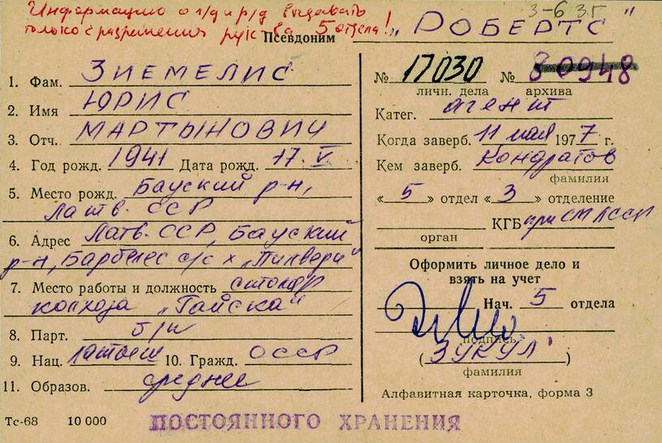 Информацию о л/д и р/д выдавать
только с разрешения рук-ва 5 отдела!
3-6 3.Г
Псевдоним „РОБЕРТС"
1. Фам. ЗИЕМЕЛИС
2. Имя ЮРИС
3. Отч. МАРТЫНОВИЧ
4. Год рожд. 1941 Дата рожд. 17.V.
5. Место рожд. Бауский р-н,
Латв. ССР
6. Адрес Латв. ССР, Бауский
р-н, Барбелес с/с х. „Пилвери"
7. Место работы и должность столяр
колхоза „Гайсма"
8. Парт. б/п
9. Нац. латыш 10. Гражд. СССР
11. Образов. среднее
Тс-68 10 000
ПОСТОЯННОГО ХРАНЕНИЯ
№ 17030 № 30948
личн. дела архива
Катег. агент
Когда заверб. 11 мая 1977 г.
Кем заверб. Кондратов
фамилия
„5" отдел „3" отделение
КГБ при СМ ЛССР
орган
Оформить личное дело и
взять на учет
Нач. 5 отдела
подпись
(ЗУКУЛ)
фамилия
Алфавитная карточка, форма 3